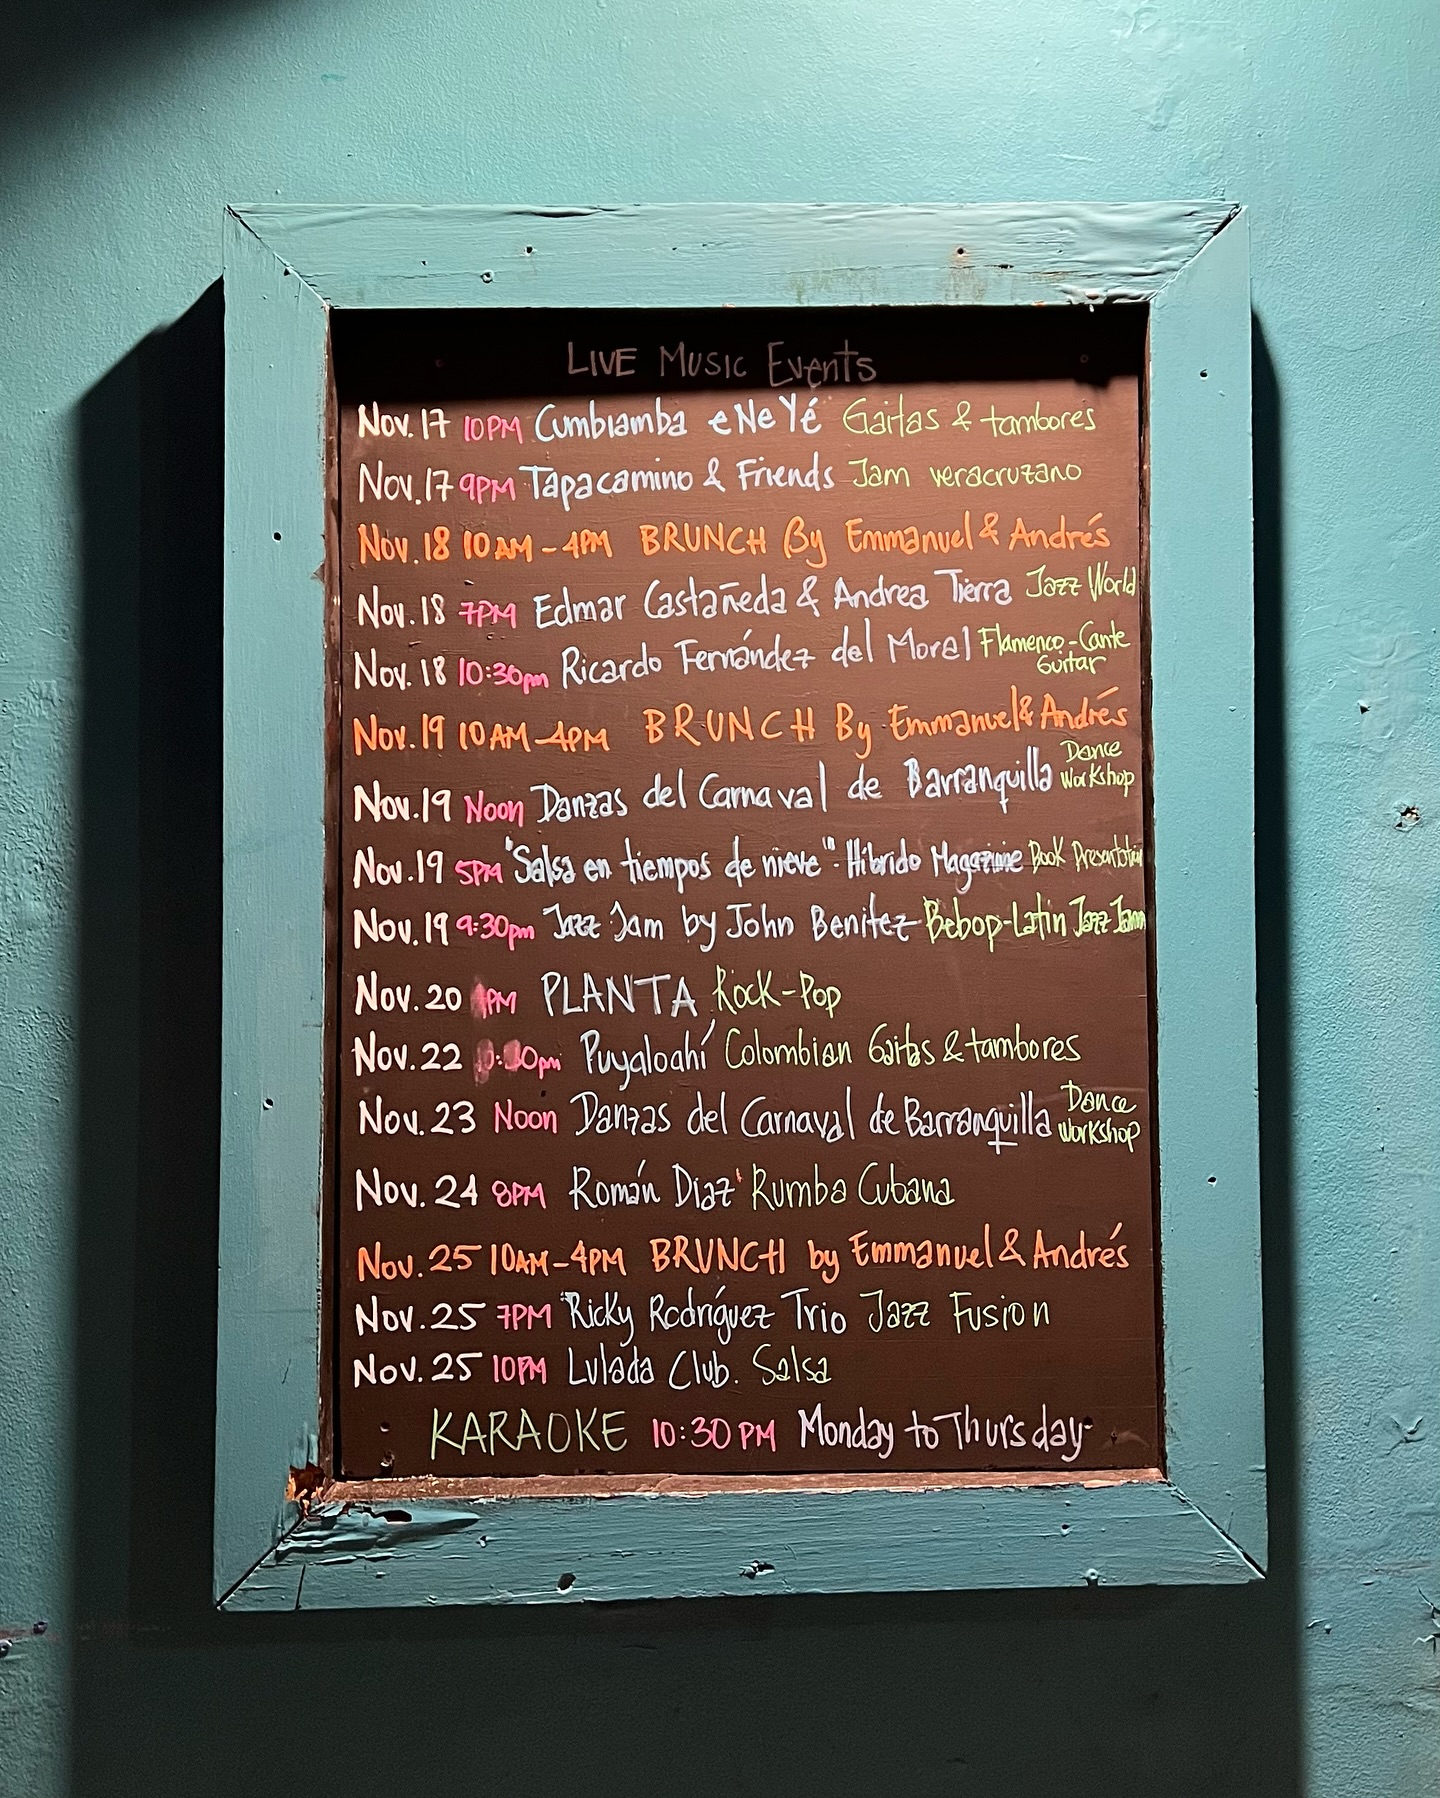 LIVE Music Events
Nov. 17 10PM Cumbiamba eNeYé Gaitas & tambores
Nov. 17 9PM Tapacamino & Friends Jam veracruzano
Nov. 18 10AM - 4PM BRUNCH By Emmanuel & Andrés
Nov. 18 7PM Edmar Castañeda & Andrea Tierra Jazz World
Nov. 18 10:30pm Ricardo Fernández del Moral Flamenco-Cante Guitar
Nov. 19 10AM - 4PM BRUNCH By Emmanuel & Andrés
Nov. 19 Noon Danzas del Carnaval de Barranquilla Dance Workshop
Nov. 19 5PM "Salsa en tiempos de nieve". Híbrido Magazine Book Presentation
Nov. 19 9:30pm Jazz Jam by John Benitez Bebop-Latin Jazz Jam
Nov. 20 PM PLANTA Rock-Pop
Nov. 22 pm Puyaloahí Colombian Gaitas & tambores
Nov. 23 Noon Danzas del Carnaval de Barranquilla Dance Workshop
Nov. 24 8PM Román Diaz Rumba Cubana
Nov. 25 10AM - 4PM BRUNCH by Emmanuel & Andrés
Nov. 25 7PM Ricky Rodríguez Trio Jazz Fusion
Nov. 25 10PM Lulada Club. Salsa
KARAOKE 10:30 PM Monday to Thursday